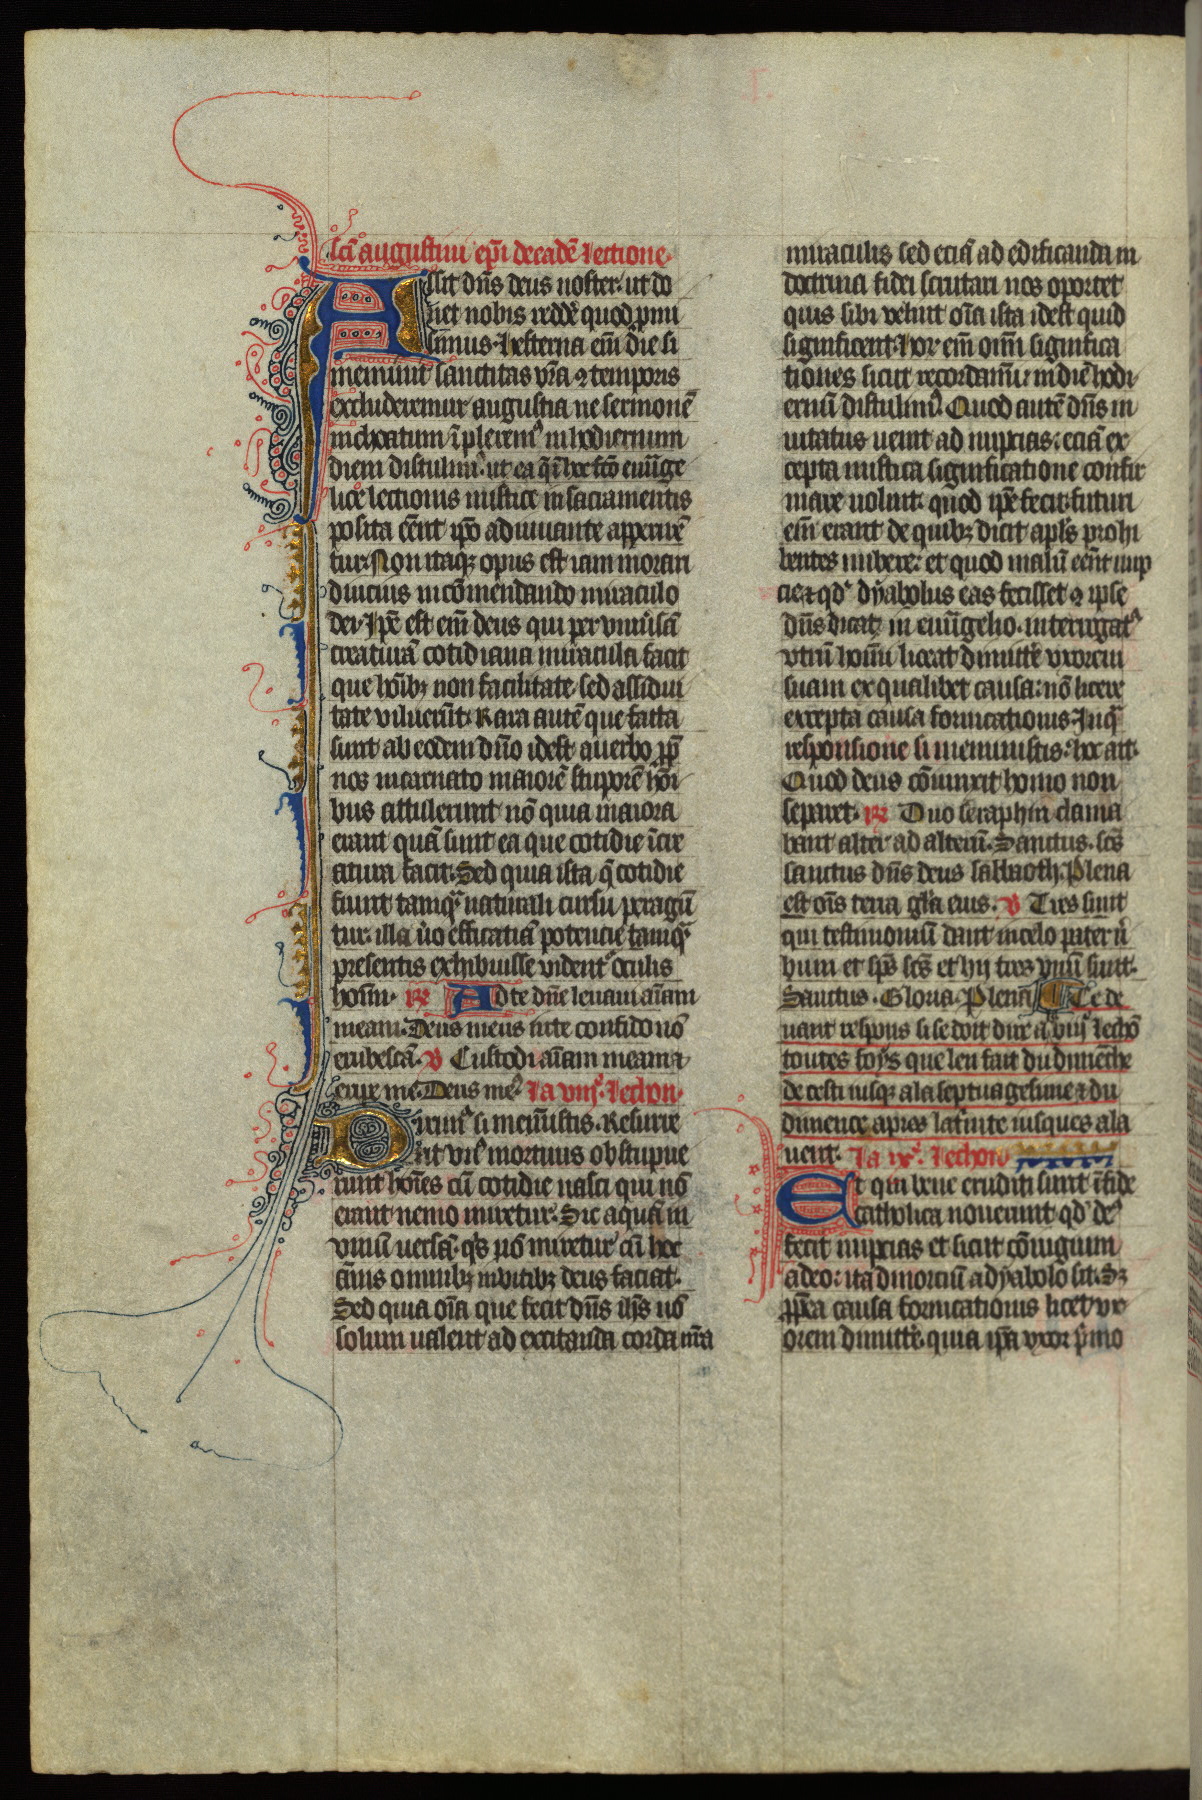 sci augustini epi de eadē lectione.
Assit dn̄s deus noster. ut do
net nobis reddē quod pmi
simus. Hesterna em̄ die si
meminit sanctitas vr̄a ⁊ temporis
excluderemur augustia ne sermonē
inchoatum īplerem᷒ in hodiernum
diem distulim᷒. ut ea q̄ ī hoc sc̄o euuāge
lice lectionis mistice in sacramentis
posita cēnt ipō adiuuante apperirē
tur. Non itaqꝫ opus est iam morari
diucius in cōmendando miraculo
dei. Ipē est em̄ deus qui per vniūsā
creaturā cotidiana miracula facit
que hoībꝫ non facilitate. sed assidui
tate viluerūt. Rara autē que facta
sunt ab eodem dn̄o idest a uerbo ꝓp̄
nos incarnato maiorē stuporē hōi
bus attulerunt nō quia maiora
erant quā sunt ea que cotidie ī cre
atura facit. Sed quia ista q̄ cotidie
fiunt tamqᷓ naturali cursu peragū
tur. illa ūo efficatiā potencie tamqᷓ
presentis exhibuisse vident᷒ oculis
hoīm. ℟ Ad te dn̄e leuaui aīam
meam. Deus meus in te confido nō
erubescā. ℣ Custodi aīam meam ⁊
eripe me. Deus me᷒. La viijᵉ. lechon.
Mirum᷒ si memīnistis. Resurre
xit vn᷒ mortuus obstupue
runt hoīes cū cotidie nasci qui nō
erant nemo miretur. Sic aquā in
vinū uersā. q̄s nō miretur cū hoc
ānis omnibꝫ in vitibꝫ deus faciat.
Sed quia oīa que fecit dn̄s ihs̄ nō
solum ualent ad excitanda corda nr̄a
miraculis sed eciā ad edificanda in
doctrina fidei scrutari nos oportet
quis sibi velint oīa ista idest quid
significent. Hor em̄ oīm significa
tiones sicut recordamī in diē hodi
ernū distulim᷒. Quod autē dn̄s in
uitatus uenit ad nupcias. eciā ex
cepta mistica significatione confir
mare uoluit. quod ipē fecit. futuri
em̄ erant de quibꝫ dicit apls̄ prohi
bentes nubere. et quod malū eēnt nup
cie. ⁊ qd᷒ dyabolus eas fecisset ⁊ ipse
dn̄s dicat in euuāgelio. interrogat᷒
vtrū homī liceat dimittē vxorem
suam ex qualibet causa. nō licere
excepta causa fornicationis. In qᷓ
responsione si meministis. hoc ait.
Quod deus cōiunxit homo non
separet. ℟ Duo seraphin clama
bant alter ad alterū. Sanctus. scs̄
sanctus dn̄s deus sabbaoth. Plena
est oīs terra glīa eius. ℣ Tres sunt
qui testimoniū dant in celo pater ū
bum et sps̄ scs̄ et hij tres vnū sunt.
Sanctus. Gloria. Plena. Ce de
uant respons si se doit dire a viijᵉ lechō
toutes foys que len fait du dimēche
de cesti iusqꝫ a la septuagesime ⁊ du
dimence apres la trinte iusques a la
uent. La ixᵉ. lechon
Et qui bene eruditi sunt ī fide
catholica nouerunt qd᷒ de᷒
fecit nupcias et sicut cōiugium
a deo. ita diuorciū a dyabolo sit. Sꝫ
ꝓpt̄ea causa fornicationis licet vx
orem dimittē. quia ipā vxor p̄mo